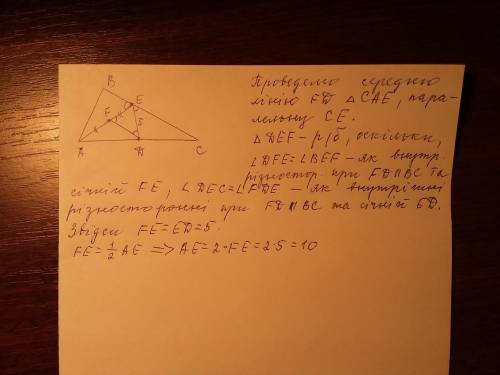 Проведемо середню
лінію FD △CAE, пара-
лельну CE.
△DEF - р/б, оскільки,
∠DFE=∠BEF - як внутр
різностор при FD||BC та
січній FE, ∠DEC=∠FDE - як внутрішні
різносторонні при FD||BC та січній ED.
Звідси FE=ED=5.
FE=1/2 AE => AE=2·FE=2·5=10
B
F
E
5
A
D
C